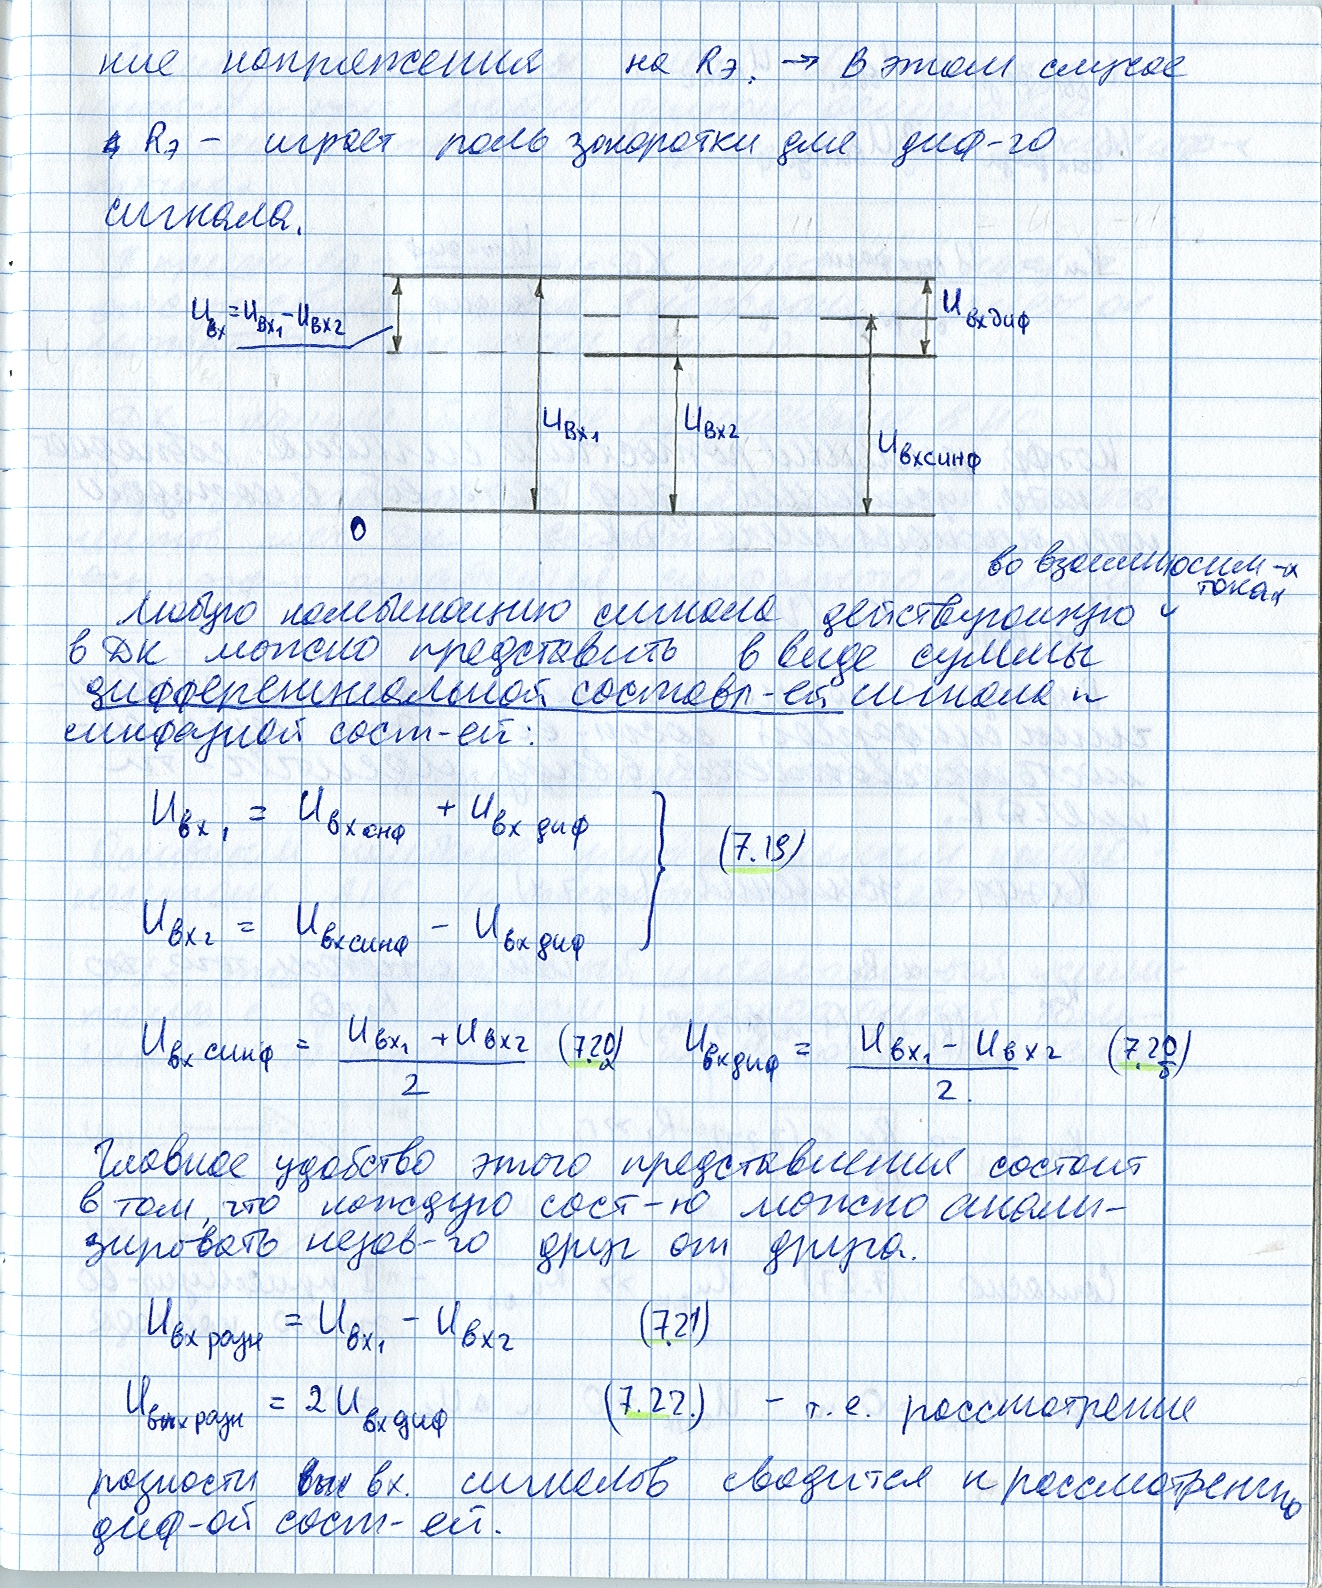 ние напряжения на Rэ. → В этом случае
Rэ – играет роль закоротки для диф-го
сигнала.
Uвх = Uвх1 – Uвх2
Uвх диф
Uвх1
Uвх2
Uвхсинф
0
во взаимносим-х
токах
Любую комбинацию сигнала действующую
в ДК можно представить в виде суммы
дифференциальной составл-ей сигнала и
синфазной сост-ей:
Uвх1 = Uвх синф + Uвх диф
(7.19)
Uвх2 = Uвхсинф – Uвх диф
Uвх синф = (Uвх1 + Uвх2) / 2 (7.20а) Uвхдиф = (Uвх1 – Uвх2) / 2. (7.20б)
Главное удобство этого представления состоит
в том, что каждую сост-ю можно анали-
зировать незав-го друг от друга.
Uвх разн = Uвх1 – Uвх2 (7.21)
Uвх разн = 2 Uвх диф (7.22.) – т.е. рассмотрение
разности вх. сигналов сводится к рассмотрению
диф-ой сост-ей.